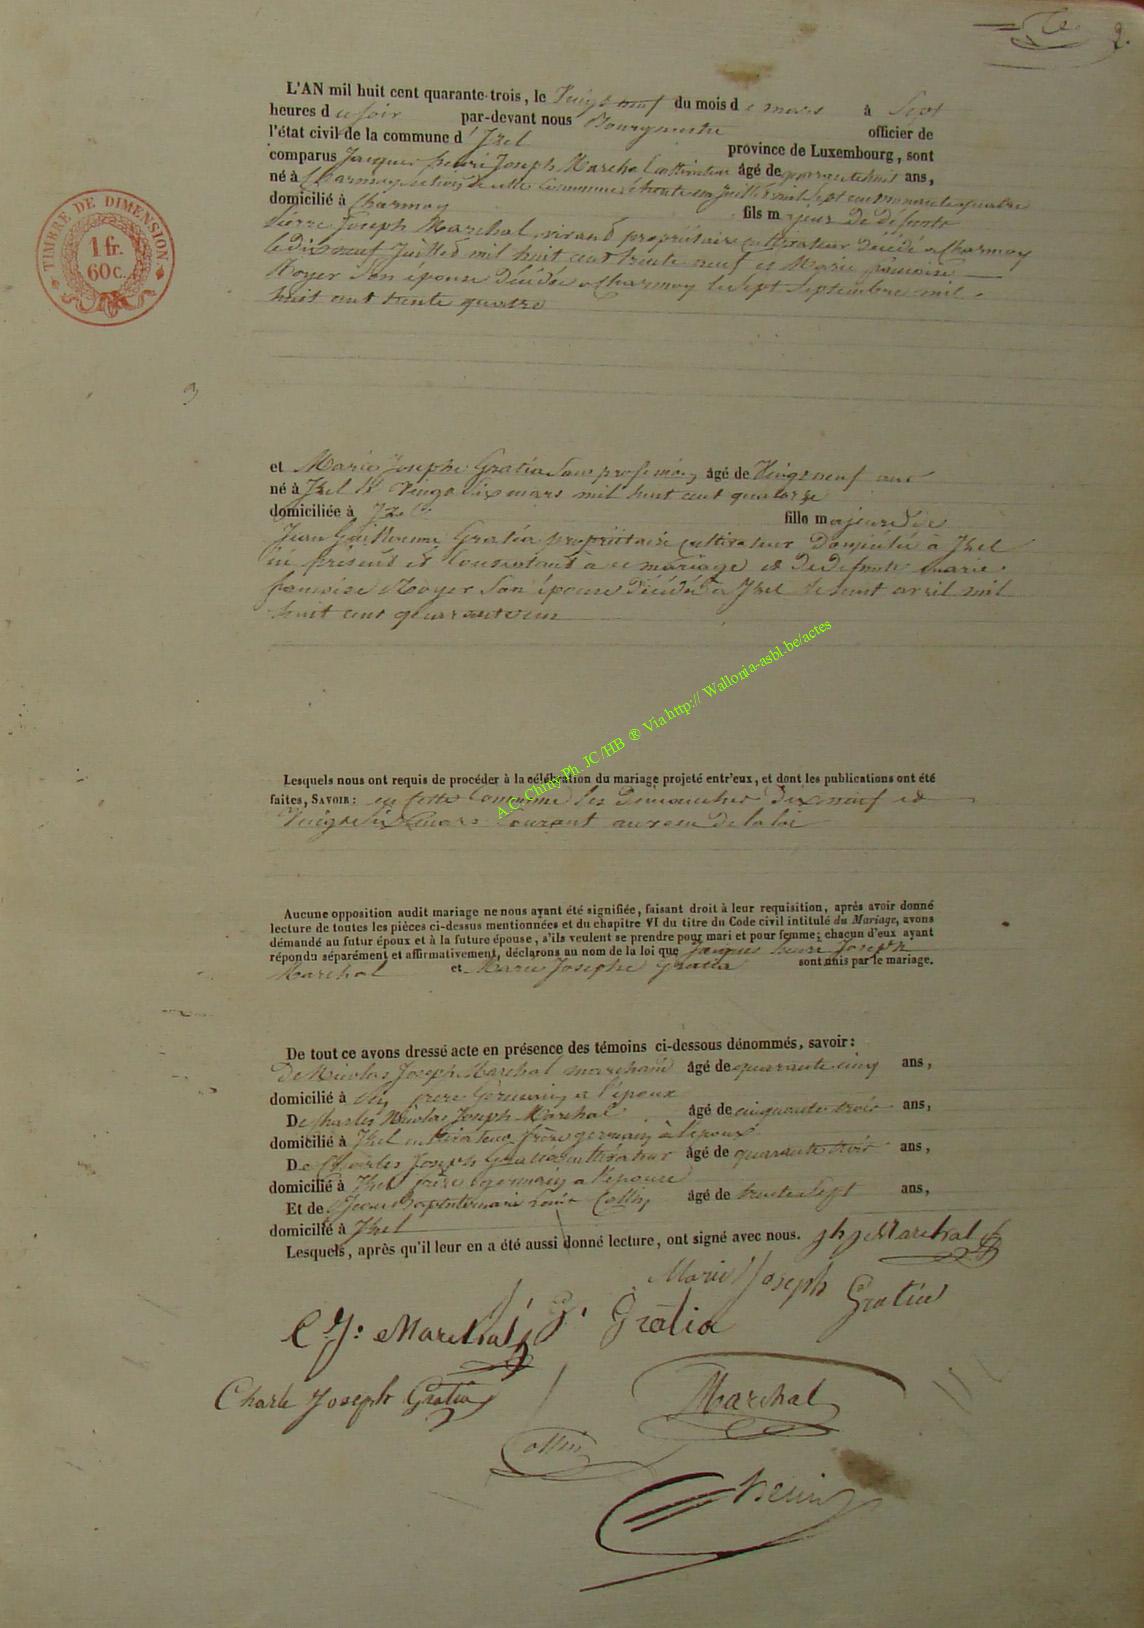 2.
L'AN mil huit cent quarante-trois, le Vingt neuf du mois de mars à Sept
heures du soir par-devant nous Bourgmestre officier de
l'état civil de la commune d'Izel province de Luxembourg, sont
comparus Jacques henri Joseph Marchal cultivateur âgé de quarante huit ans,
né à Charmoy section de cette commune le trente un Juillet mil Sept cent nonante quatre
domicilié à Charmoy fils majeur de défunts
Pierre Joseph Marchal vivant propriétaire cultivateur décédé à Charmoy
le dix neuf Juillet mil huit cent trente neuf et Marie françoise
Noyer son épouse décédée à Charmoy le sept Septembre mil
huit cent trente quatre
TIMBRE DE DIMENSION
1 fr.
60 c.
3
et Marie Josephe Gratia Sans profession, âgé de Vingt neuf ans
né à Izel le Vingt Six mars mil huit cent quatorze
domiciliée à Izel fille majeure de
Jean Guillaume Gratia propriétaire cultivateur Domicilié à Izel
ici présent et Consentant à ce mariage et de défunte marie
françoise Noyer Son épouse décédée à Izel le huit avril mil
huit cent quarante un
A.C. Chiny Ph. JC /HB ® Via http:// Wallonia-asbl.be/actes
Lesquels nous ont requis de procéder à la célébration du mariage projeté entr'eux, et dont les publications ont été
faites, SAVOIR: en cette Commune les Dimanches Dix neuf et
Vingt Six mars Courant au vœu de la loi
Aucune opposition audit mariage ne nous ayant été signifiée, faisant droit à leur requisition, après avoir donné
lecture de toutes les pièces ci-dessus mentionnées et du chapitre VI du titre du Code civil intitulé du Mariage, avons
démandé au futur époux et à la future épouse, s'ils veulent se prendre pour mari et pour femme; chacun d'eux ayant
répondu séparément et affirmativement, déclarons au nom de la loi que Jacques henri Joseph
Marchal et Marie Josephe Gratia sont unis par le mariage.
De tout ce avons dressé acte en présence des témoins ci-dessous dénommés, savoir:
De Nicolas Joseph Marchal marchand âgé de quarante cinq ans,
domicilié à frère Germain à l'époux
De Charles Nicolas Joseph Marchal âgé de cinquante trois ans,
domicilié à Izel cultivateur frère germain à l'époux
De Charles Joseph Gratia cultivateur âgé de quarante trois ans,
domicilié à Izel frère germain à l'épouse
Et de Jean Baptiste Collin âgé de trente Sept ans,
domicilié à Izel
Lesquels, après qu'il leur en a été aussi donné lecture, ont signé avec nous. jhj Marchal
Marie Joseph Gratia
C. N. J. Marchal J. G. Gratia
Charle Joseph Gratia Marchal
Collin